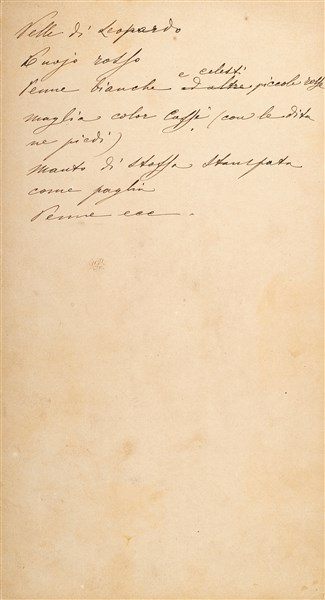 Pelle di Leopardo
Cuojo rosso
e celesti
Penne bianche ed altre piccole rosse
Maglia color Caffè (con le dita
ne piedi)
Manto di stoffa stampata
come paglia
Penne ecc.